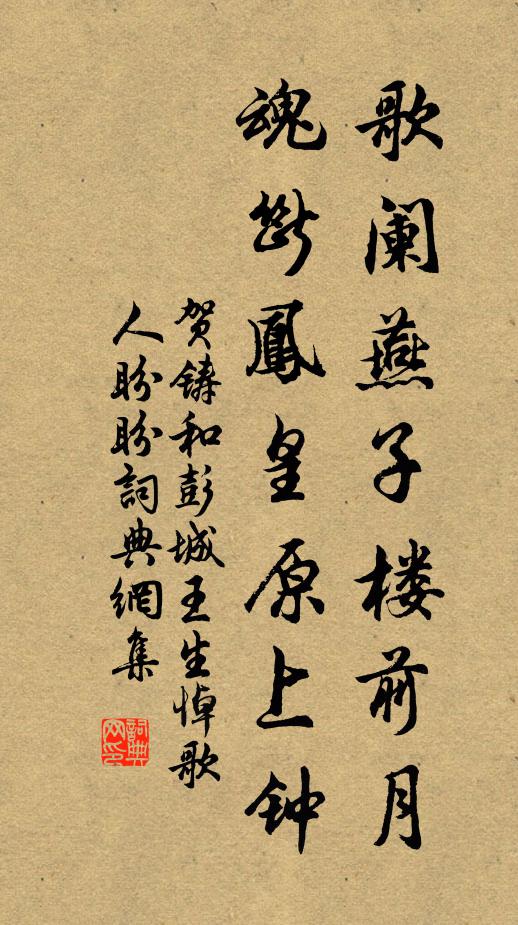 歌阑燕子楼前月
魂断鳳皇原上钟
贺鑄和彭城王生悼歌
人盼盼詞典網集
詞典网印